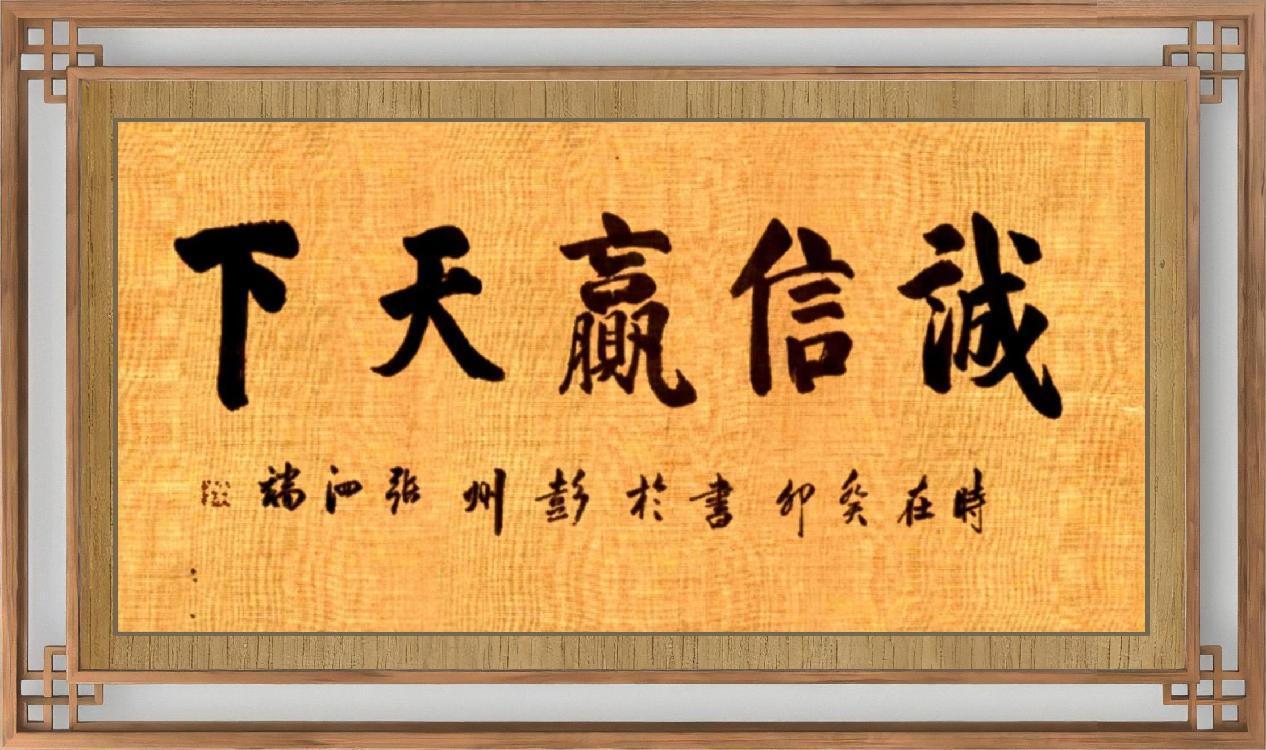 誠信贏天下
時在癸卯書於彭州張泗端